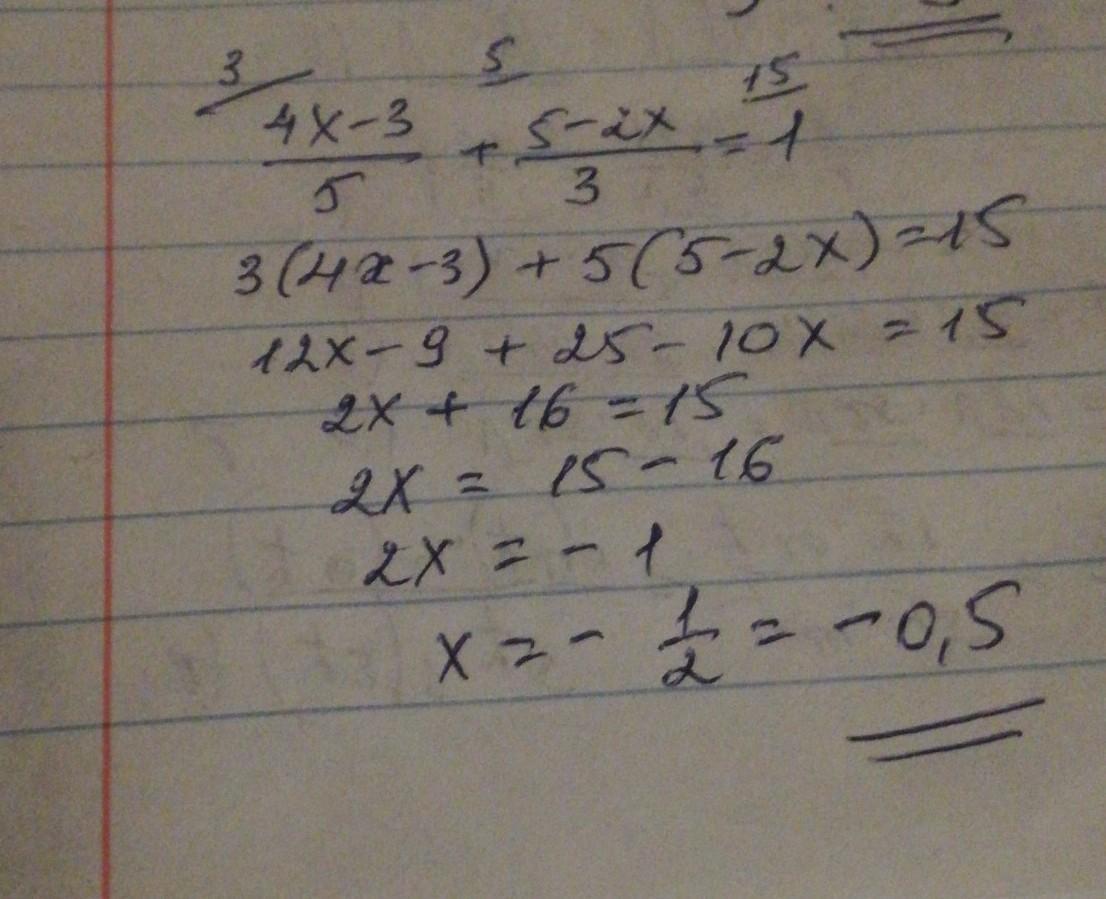 3 5 15
4x-3/5 + 5-2x/3 = 1
3(4x-3) + 5(5-2x) = 15
12x - 9 + 25 - 10x = 15
2x + 16 = 15
2x = 15 - 16
2x = - 1
x = - 1/2 = - 0,5